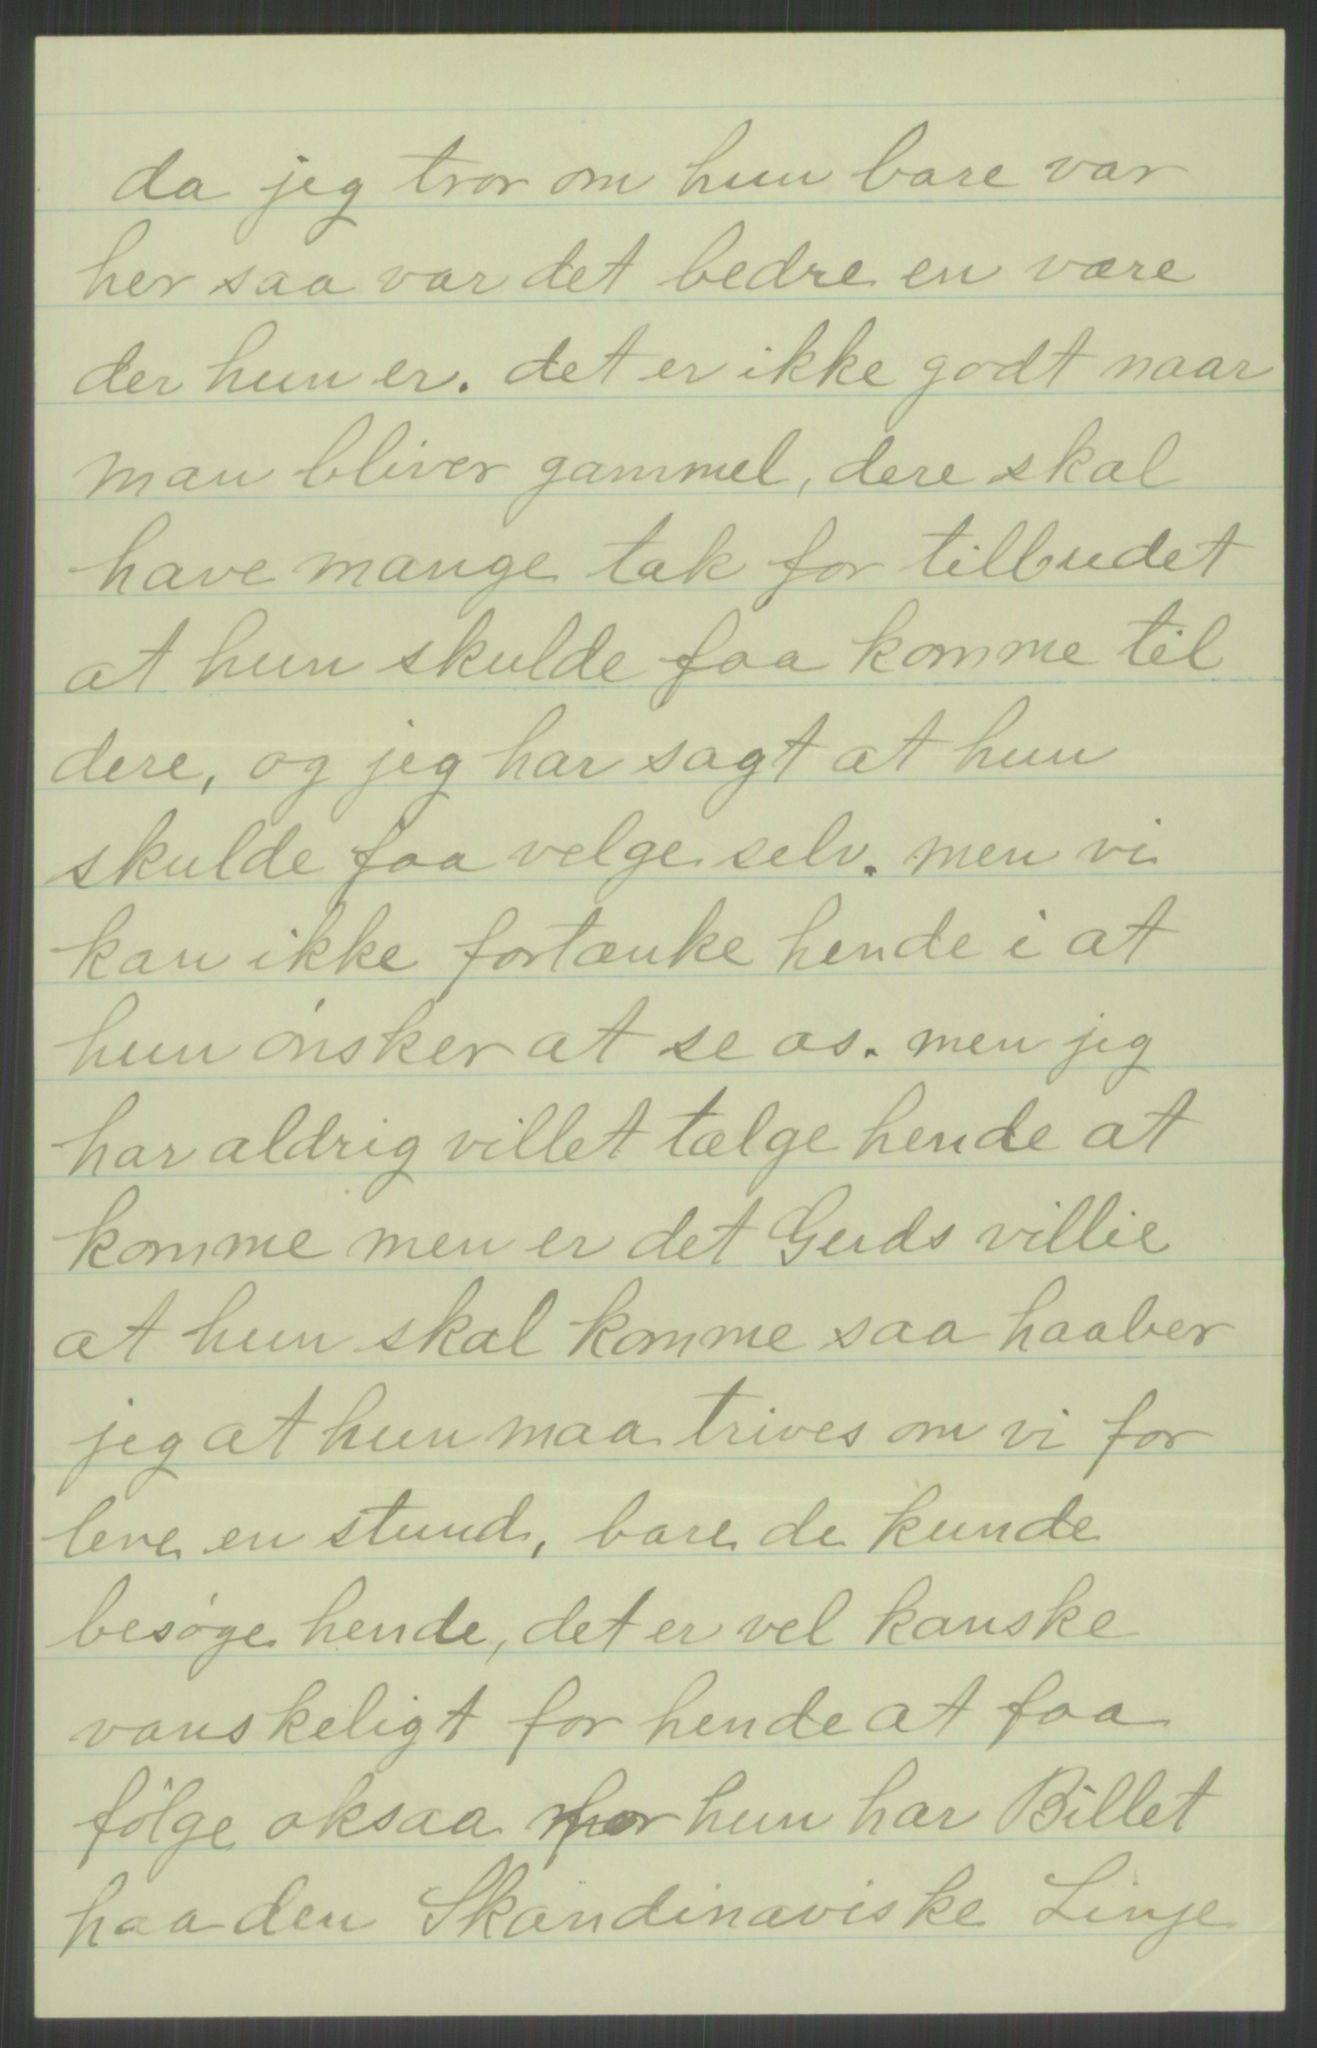 da jeg tror om hun bare var
her saa var det bedre en være
der hun er. det er ikke godt naar
man bliver gammel, dere skal
have mange tak for tilbudet
at hun skulde faa komme til
dere, og jeg har sagt at hun
skulde faa velge selv. men vi
kan ikke fortænke hende i at
hun ønsker at se os. men jeg
har aldrig villet tælge hende at
komme men er det Guds villie
at hun skal komme saa haaber
jeg at hun maa trives om vi for
leve en stund, bare de kunde
besøge hende, det er vel kanske
vanskeligt for hende at faa
følge oksaa for hun har Billet
paa den Skandinaviske Linje